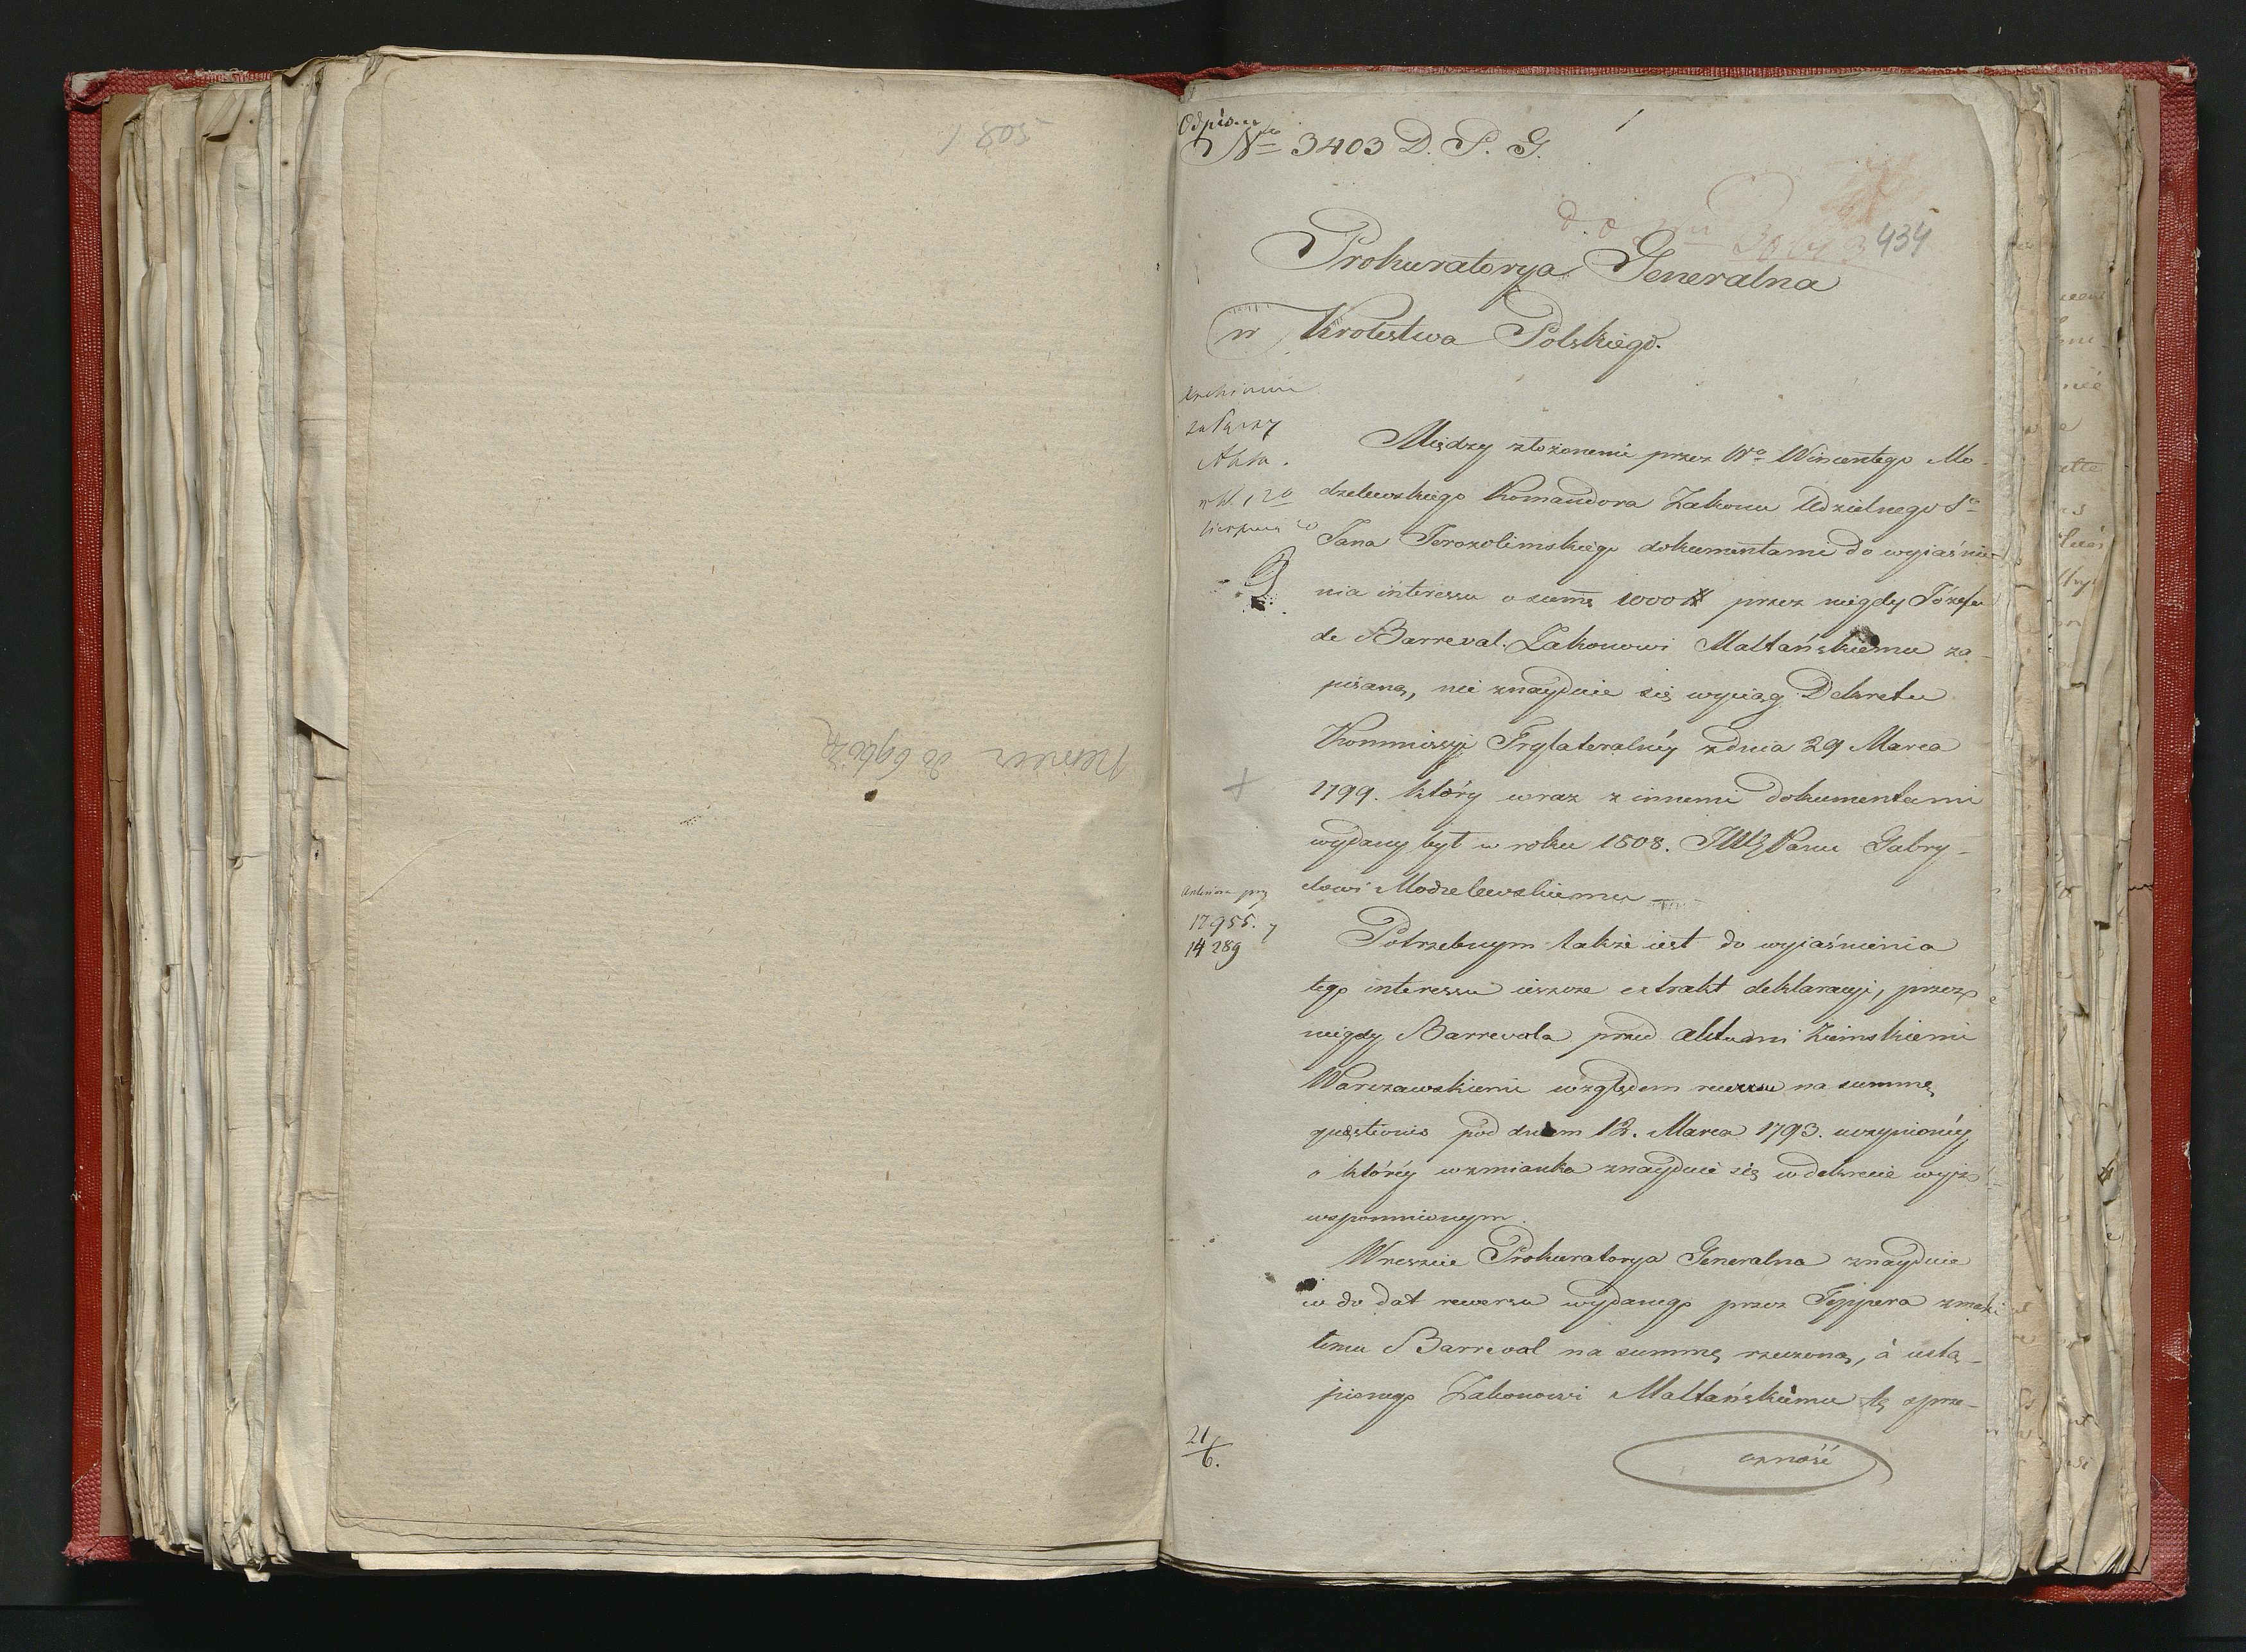 508
do
Odpisu
Nro 3403 D. P. G.
1
434
Prokuratorya Generalna
Krolestwa Polskiego.
Akta.
Między złożonemi przez Wo Wincentego Mo-
dzelewskiego Komandora Zakonu Udzielnego So
Jana Jerozolimskiego dokumentami do wyiaśnie-
nia interessu o summę 1000 # przez niegdy Józefa
de Barreval Zakonowi Maltańskiemu za-
pisaną, nie znayduie się wyciąg Dekretu
Kommissyi Trylateralnéy z dnia 29 Marca
1799. który wraz z innemi dokumentami
wydany był w roku 1808. JW Panu Gabry-
elowi Modzelewskiemu
17955. y
14289
Potrzebnym także iest do wyiaśnienia
tego interessu ieszcze extrakt deklaracyi, przez
niegdy Barrevala przed Aktami Ziemskiemi
Warszawskiemi względem rewersu na summę
questionis pod dniem 12. Marca 1793. uczynionéy
o któréy wzmianka znayduie się w dekrecie wyżej
wspomnionym.
Wreszcie Prokuratorya Generalna znayduie
co do dat rewersu wydanego przez Teppera
temu Barreval na summę rzeczoną, à ustą-
pionego Zakonowi Maltańskiemu tę sprze-
czność
21/6.